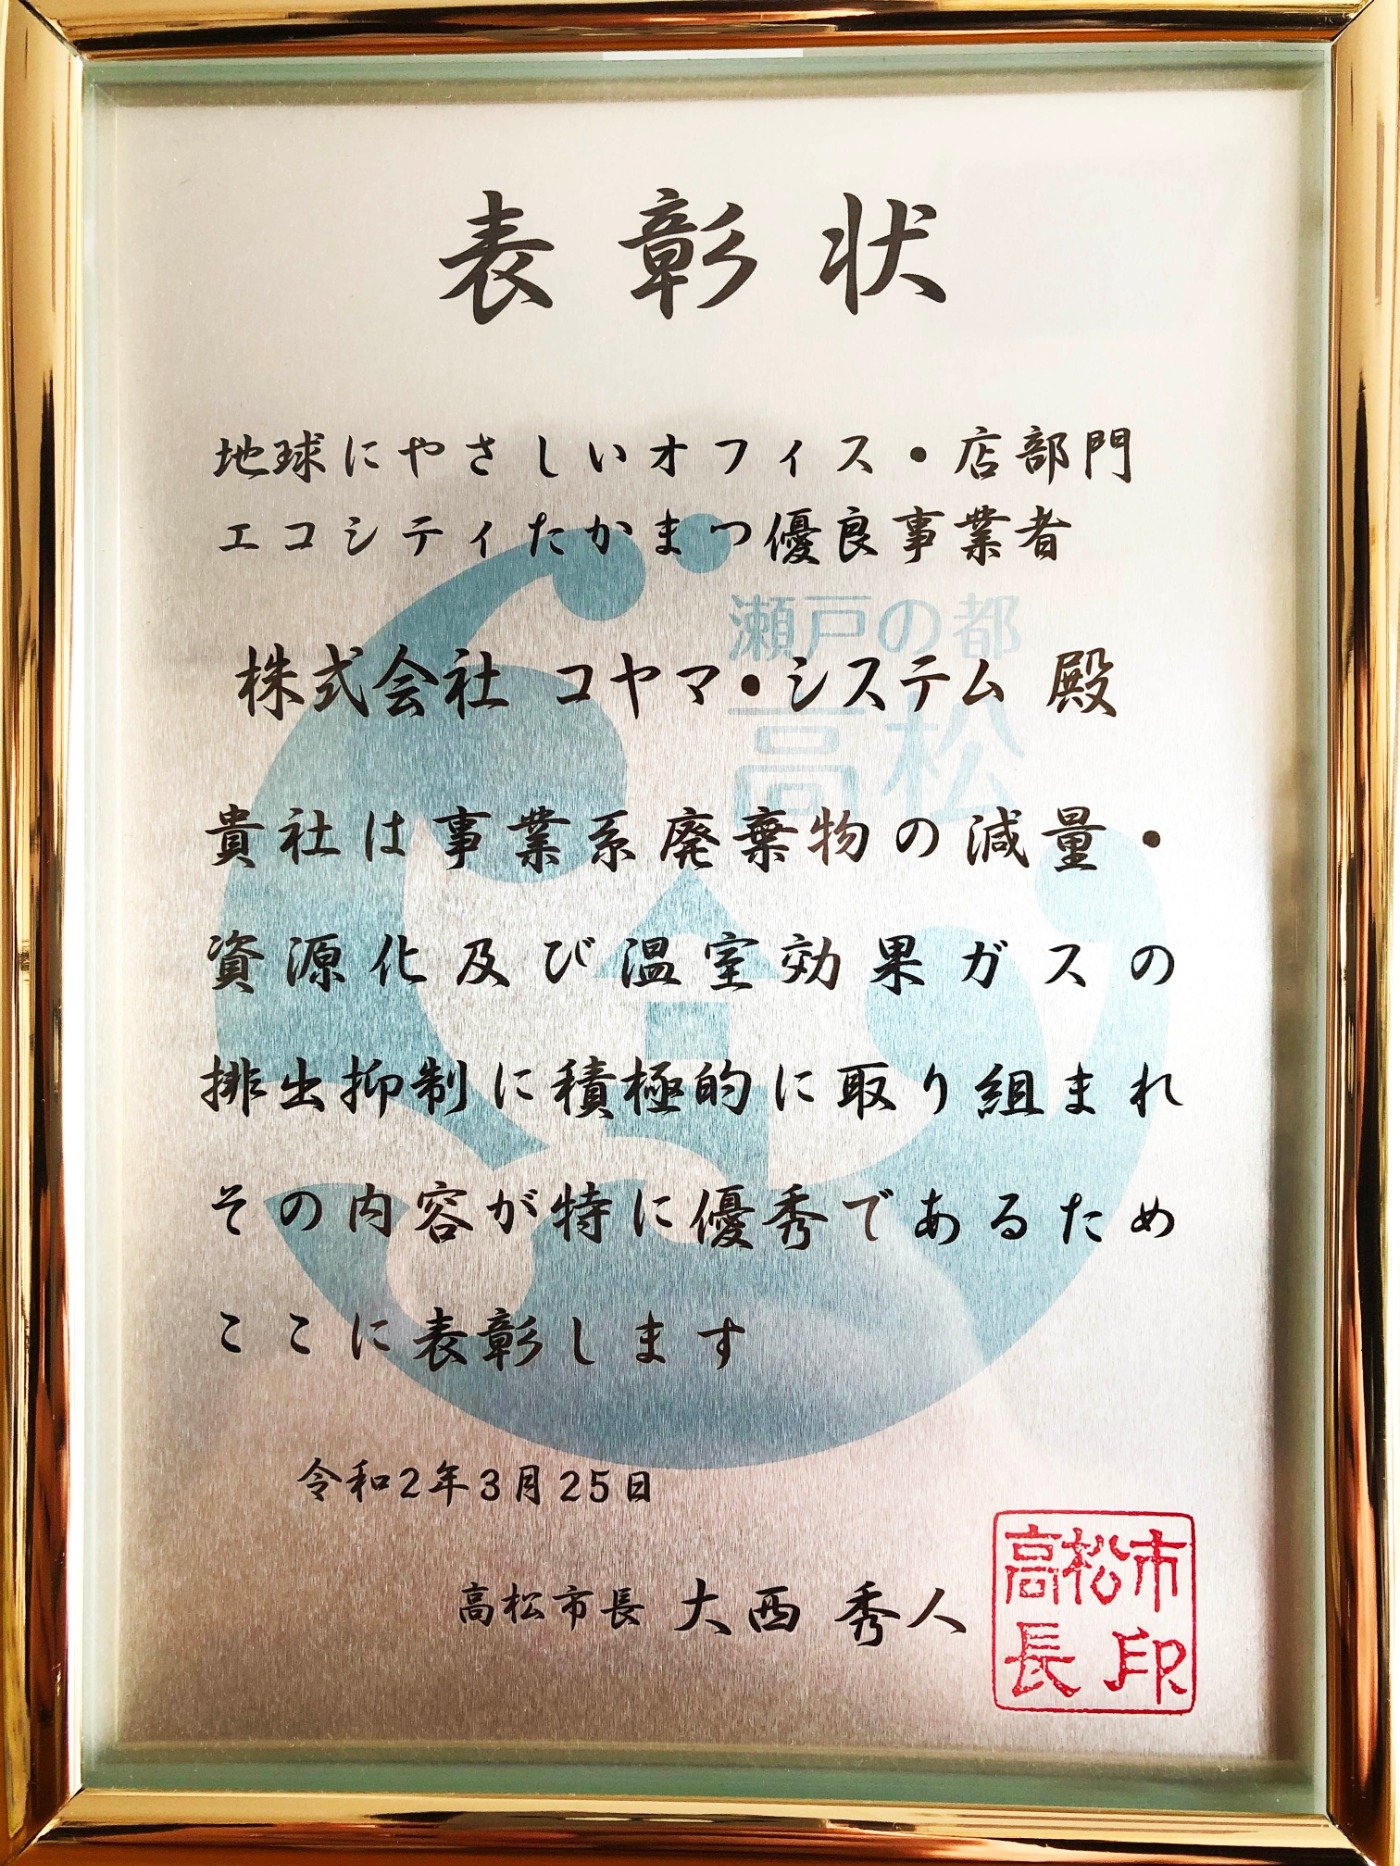 表彰状
地球にやさしいオフィス・店部門
エコシティたかまつ優良事業者
瀬戸の都
株式会社 コヤマ・システム 殿
高松
貴社は事業系廃棄物の減量・
資源化及び温室効果ガスの
排出抑制に積極的に取り組まれ
その内容が特に優秀であるため
ここに表彰します
令和2年3月25日
高松市長 大西 秀人
高松市
長印